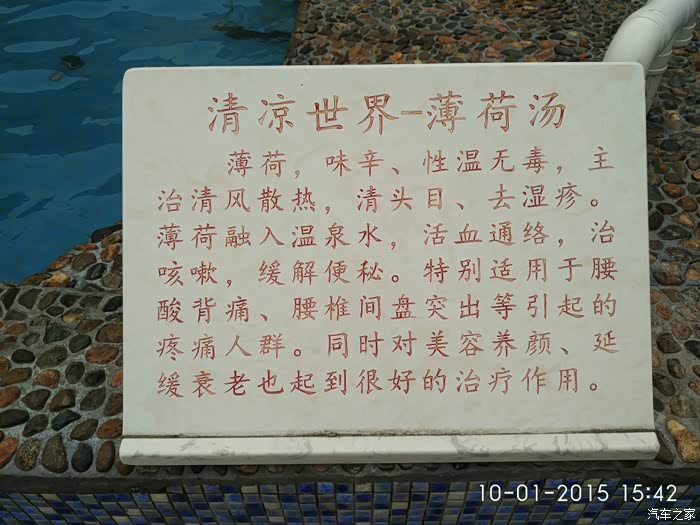 清凉世界-薄荷汤
薄荷，味辛、性温无毒，主
治清风散热，清头目、去湿疹。
薄荷融入温泉水，活血通络，治
咳嗽，缓解便秘。特别适用于腰
酸背痛、腰椎间盘突出等引起的
疼痛人群。同时对美容养颜、延
缓衰老也起到很好的治疗作用。
10-01-2015 15:42
汽车之家